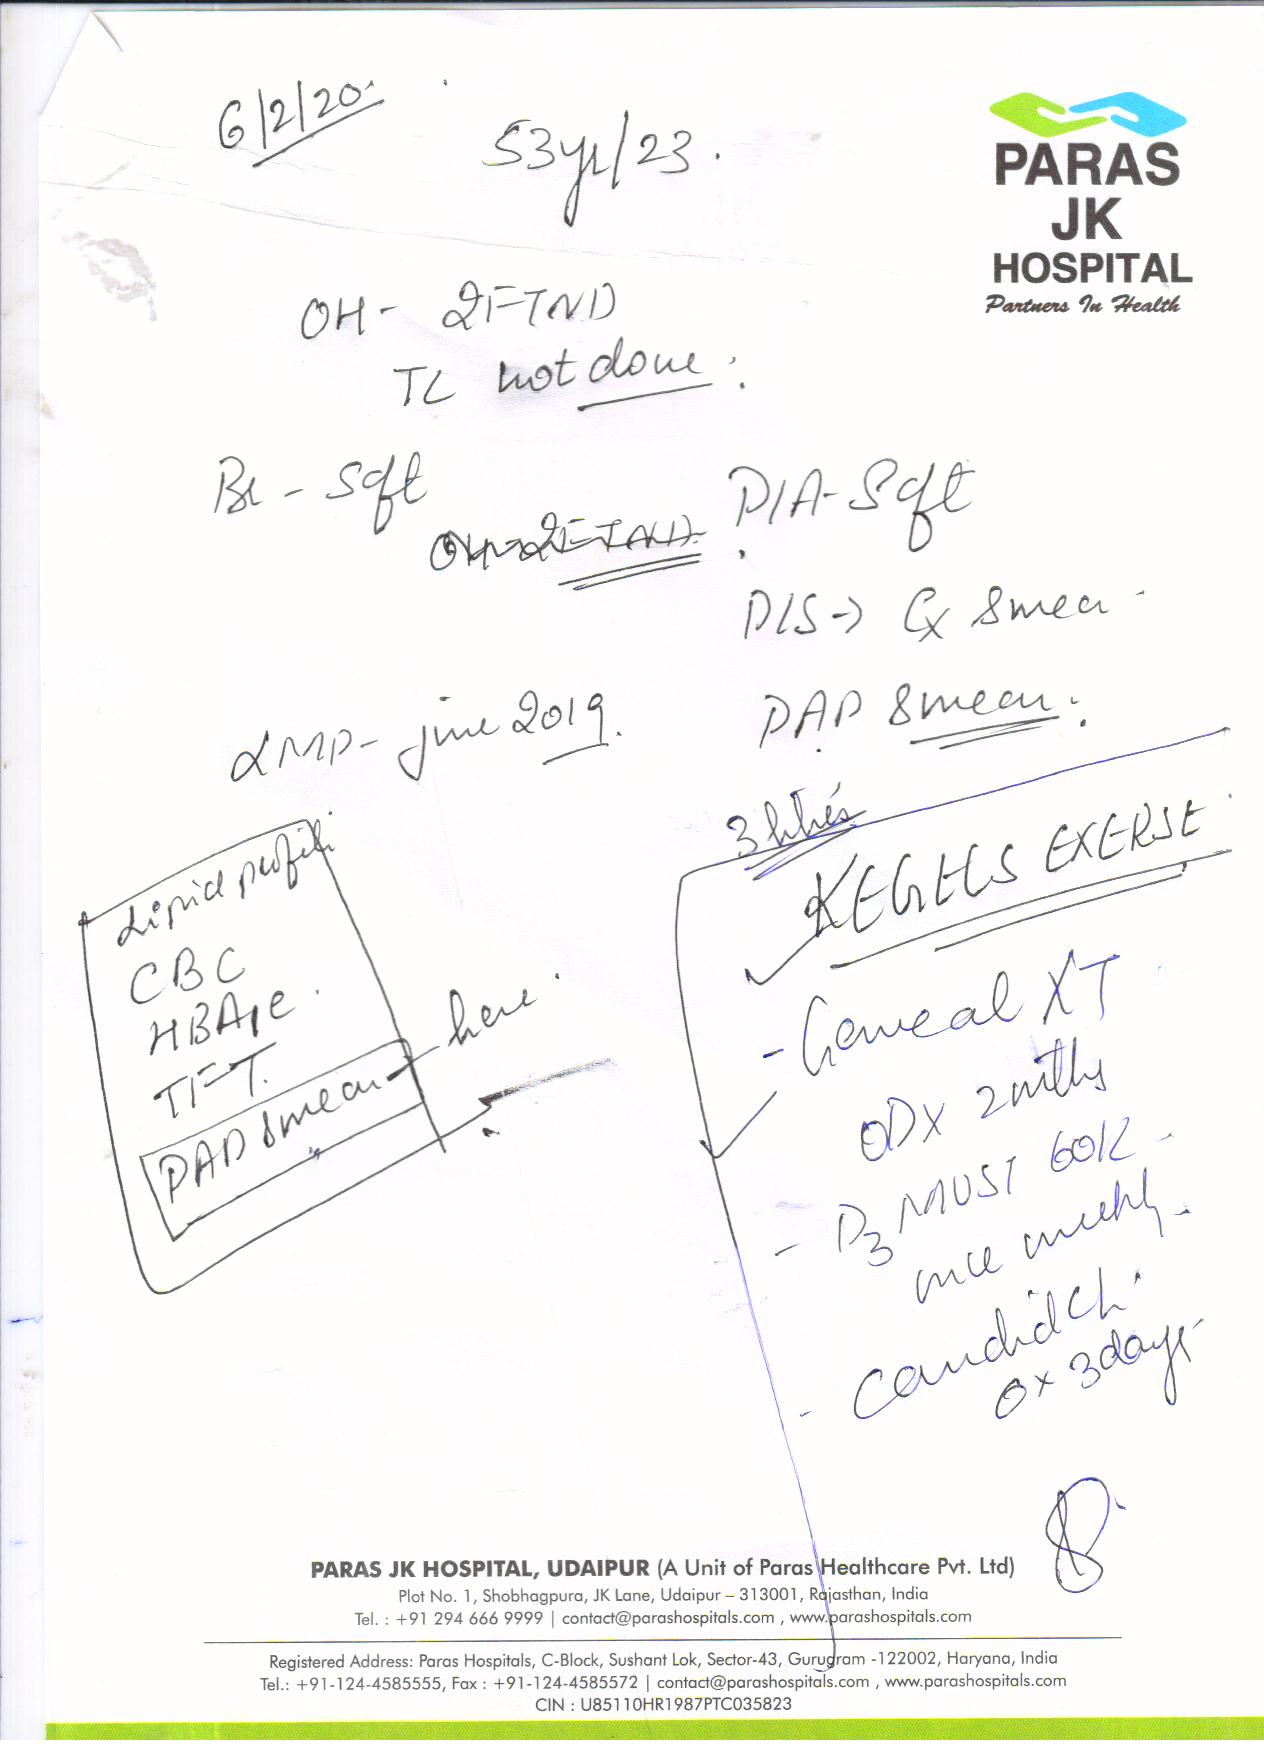 6/2/20
53yr/23.
PARAS
JK
HOSPITAL
Partners In Health
OH - 2FTND
TL not done.
Br - Soft
P/A - Soft
OH - 2FTND
P/S -> Cx Smear
LMP - june 2019.
PAP Smear.
KEGHELS EXERSE
Lipid profile
CBC
HBA1C
TFT.
PAP Smear - here.
- General XT
OD x 2 mths
- D3 MUST 60K
once weekly.
- Candid CL
0 x 3 days
PARAS JK HOSPITAL, UDAIPUR (A Unit of Paras Healthcare Pvt. Ltd)
Plot No. 1, Shobhagpura, JK Lane, Udaipur – 313001, Rajasthan, India
Tel. : +91 294 666 9999 | contact@parashospitals.com , www.parashospitals.com
Registered Address: Paras Hospitals, C-Block, Sushant Lok, Sector-43, Gurugram -122002, Haryana, India
Tel.: +91-124-4585555, Fax : +91-124-4585572 | contact@parashospitals.com , www.parashospitals.com
CIN : U85110HR1987PTC035823